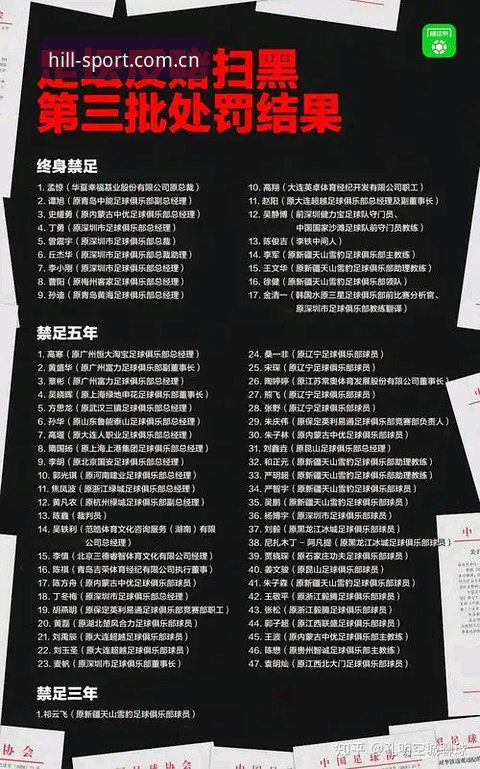 hill-sport.com.cn
足坛反赌扫黑
第三批处罚结果
终身禁足
1. 孟惊（华夏幸福基业股份有限公司原总裁）
2. 谭旭（原青岛中能足球俱乐部副总经理）
3. 史耀勇（原内蒙古中优足球俱乐部总经理）
4. 丁勇（原深圳市足球俱乐部总经理）
5. 曾震宇（原深圳市足球俱乐部总裁）
6. 丘杰华（原深圳市足球俱乐部总裁助理）
7. 李小刚（原深圳市足球俱乐部总经理）
8. 曹阳（原梅州客家足球俱乐部总经理）
9. 孙迪（原青岛黄海足球俱乐部总经理）
10. 高翔（大连英卓体育经纪开发有限公司职工）
11. 赵阳（原大连超越足球俱乐部总经理及副董事长）
12. 吴静博（前深圳健力宝足球队守门员、
中国国家沙滩足球队前守门员教练）
13. 陈俊吉（李铁中间人）
14. 李军（原新疆天山雪豹足球俱乐部主教练）
15. 王文华（原新疆天山雪豹足球俱乐部助理教练）
16. 徐健（原新疆天山雪豹足球俱乐部领队）
17. 金清一（韩国水原三星足球俱乐部前比赛分析官、
原深圳市足球俱乐部教练翻译）
禁足五年
1. 高寒（原广州恒大淘宝足球俱乐部总经理）
2. 黄盛华（原广州富力足球俱乐部副董事长）
3. 章彬（原广州富力足球俱乐部总经理）
4. 吴晓晖（原上海绿地申花足球俱乐部董事长）
5. 方思龙（原武汉三镇足球俱乐部总经理）
6. 孙华（原山东鲁能泰山足球俱乐部总经理）
7. 高堰（原大连人职业足球俱乐部总经理）
8. 隋国扬（原上海上港集团足球俱乐部总经理）
9. 李明（原北京国安足球俱乐部总经理）
10. 郭光琪（原河南建业足球俱乐部总经理）
11. 焦凤波（原浙江绿城足球俱乐部总经理）
12. 黄凡农（原杭州绿城足球俱乐部副总经理）
13. 陈鑫（裁判员）
14. 吴轶利（范皓体育文化咨询服务（湖南）有限
公司总经理）
15. 李慎（北京三德睿智体育文化有限公司经理）
16. 陈祺（青岛吉荣体育经纪有限公司执行董事）
17. 陈方舟（原内蒙古中优足球俱乐部球员）
18. 丁冬梅（原深圳市足球俱乐部总经理）
19. 胡燕明（原保定英利易通足球俱乐部竞赛部职工）
20. 黄磊（原湖北楚风合力足球俱乐部球员）
21. 刘禹辰（原大连超越足球俱乐部球员）
22. 刘玉圣（原大连超越足球俱乐部球员）
23. 麦帆（原深圳市足球俱乐部董事长）
24. 桑一非（原辽宁足球俱乐部球员）
25. 宋琛（原辽宁足球俱乐部球员）
26. 陶婷婷（原江苏常奥体育发展股份有限公司董事长）
27. 熊飞（原辽宁足球俱乐部球员）
28. 张野（原辽宁足球俱乐部球员）
29. 朱庆伟（原保定英利易通足球俱乐部竞赛部负责人）
30. 朱子林（原内蒙古中优足球俱乐部球员）
31. 刘鑫垚（原昆山足球俱乐部球员）
32. 和正元（原新疆天山雪豹足球俱乐部助理教练）
33. 严明超（原新疆天山雪豹足球俱乐部助理教练）
34. 严智宇（原新疆天山雪豹足球俱乐部球员）
35. 吴鹏（原新疆天山雪豹足球俱乐部球员）
36. 杨博宇（原贵州足球俱乐部球员）
37. 刘毅（原黑龙江冰城足球俱乐部球员）
38. 尼扎木丁－阿凡提（原黑龙江冰城足球俱乐部球员）
39. 贾晓琛（原石家庄功夫足球俱乐部球员）
40. 姜文骏（原昆山足球俱乐部球员）
41. 朱子森（原新疆天山雪豹足球俱乐部球员）
42. 王敬平（原浙江毅腾足球俱乐部球员）
43. 张松（原浙江毅腾足球俱乐部球员）
44. 郭子超（原江西联盛足球俱乐部球员）
45. 王波（原内蒙古中优足球俱乐部主教练）
46. 陈懋（原贵州智诚足球俱乐部主教练）
47. 袁明灿（原江西北大门足球俱乐部球员）
禁足三年
1.祁云飞（原新疆天山雪豹足球俱乐部球员）